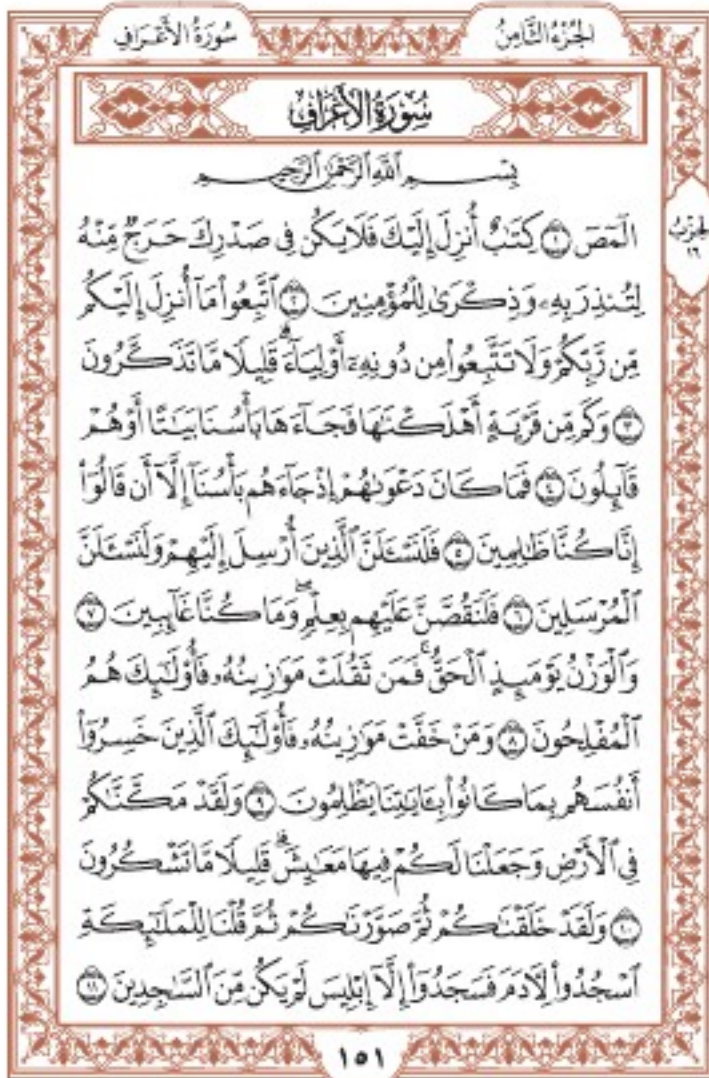 سُورَةُ الأَعْرَافِ
الجُزْءُ الثَّامِنُ
سُورَةُ الأَعْرَافِ
بِسْمِ اللَّهِ الرَّحْمَٰنِ الرَّحِيمِ
الحِزْبُ
١٦
الٓمٓصٓ ١ كِتَٰبٌ أُنزِلَ إِلَيْكَ فَلَا يَكُن فِى صَدْرِكَ حَرَجٌ مِّنْهُ
لِتُنذِرَ بِهِۦ وَذِكْرَىٰ لِلْمُؤْمِنِينَ ٢ ٱتَّبِعُوا۟ مَآ أُنزِلَ إِلَيْكُم
مِّن رَّبِّكُمْ وَلَا تَتَّبِعُوا۟ مِن دُونِهِۦٓ أَوْلِيَآءَ ۗ قَلِيلًا مَّا تَذَكَّرُونَ
٣ وَكَم مِّن قَرْيَةٍ أَهْلَكْنَٰهَا فَجَآءَهَا بَأْسُنَا بَيَٰتًا أَوْ هُمْ
قَآئِلُونَ ٤ فَمَا كَانَ دَعْوَىٰهُمْ إِذْ جَآءَهُم بَأْسُنَآ إِلَّآ أَن قَالُوٓا۟
إِنَّا كُنَّا ظَٰلِمِينَ ٥ فَلَنَسْـَٔلَنَّ ٱلَّذِينَ أُرْسِلَ إِلَيْهِمْ وَلَنَسْـَٔلَنَّ
ٱلْمُرْسَلِينَ ٦ فَلَنَقُصَّنَّ عَلَيْهِم بِعِلْمٍ ۖ وَمَا كُنَّا غَآئِبِينَ ٧
وَٱلْوَزْنُ يَوْمَئِذٍ ٱلْحَقُّ ۚ فَمَن ثَقُلَتْ مَوَٰزِينُهُۥ فَأُو۟لَٰٓئِكَ هُمُ
ٱلْمُفْلِحُونَ ٨ وَمَنْ خَفَّتْ مَوَٰزِينُهُۥ فَأُو۟لَٰٓئِكَ ٱلَّذِينَ خَسِرُوٓا۟
أَنفُسَهُم بِمَا كَانُوا۟ بِـَٔايَٰتِنَا يَظْلِمُونَ ٩ وَلَقَدْ مَكَّنَّٰكُمْ
فِى ٱلْأَرْضِ وَجَعَلْنَا لَكُمْ فِيهَا مَعَٰيِشَ ۗ قَلِيلًا مَّا تَشْكُرُونَ
١٠ وَلَقَدْ خَلَقْنَٰكُمْ ثُمَّ صَوَّرْنَٰكُمْ ثُمَّ قُلْنَا لِلْمَلَٰٓئِكَةِ
ٱسْجُدُوا۟ لِـَٔادَمَ فَسَجَدُوٓا۟ إِلَّآ إِبْلِيسَ لَمْ يَكُن مِّنَ ٱلسَّٰجِدِينَ ١١
١٥١